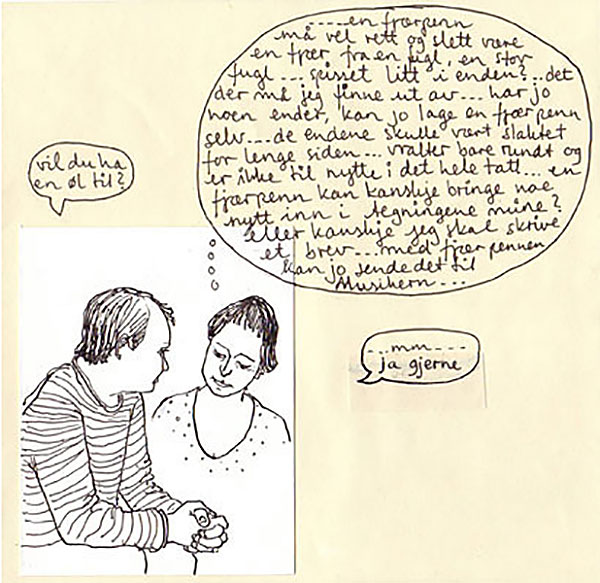 vil du ha
en øl til?
-----en fjærpenn
må vel rett og slett være
en fjær fra en fugl, en stor
fugl... spisset litt i enden?...det
der må jeg finne ut av... har jo
noen ender, kan jo lage en fjærpenn
selv...de endene skulle vært slaktet
for lenge siden... vralter bare rundt og
er ikke til nytte i det hele tatt... en
fjærpenn kan kanskje bringe noe
nytt inn i tegningene mine?
eller kanskje jeg skal skrive
et brev...med fjærpennen
kan jo sende det til
Musikern...
...mm----
ja gjerne